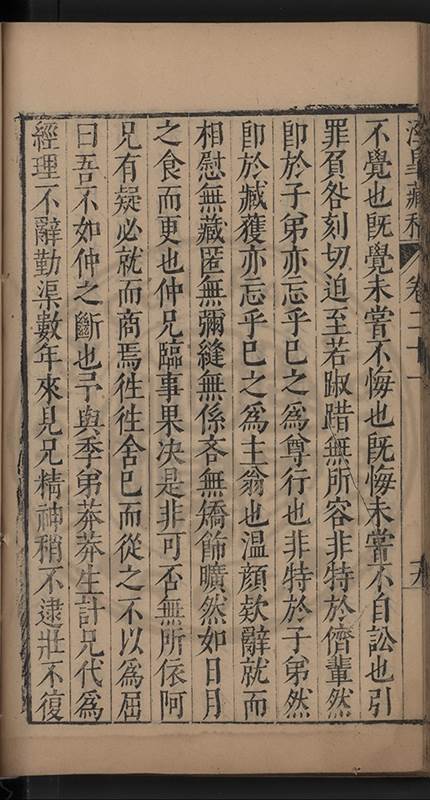 涇臯藏稿 卷二十一
不覺也旣覺未嘗不悔也旣悔未嘗不自訟也引
罪負咎刻切迫至若踧踖無所容非特於儕輩然
卽於子弟亦忘乎已之爲尊行也非特於子弟然
卽於臧獲亦忘乎已之爲主翁也溫顔欵辭就而
相慰無藏匿無彌縫無係吝無矯飾曠然如日月
之食而更也仲兄臨事果決是非可否無所依阿
兄有疑必就而商焉徃徃舍已而從之不以爲屈
曰吾不如仲之斷也予與季弟莽莽生計兄代爲
經理不辭勤渠數年來見兄精神稍不逮壯不復